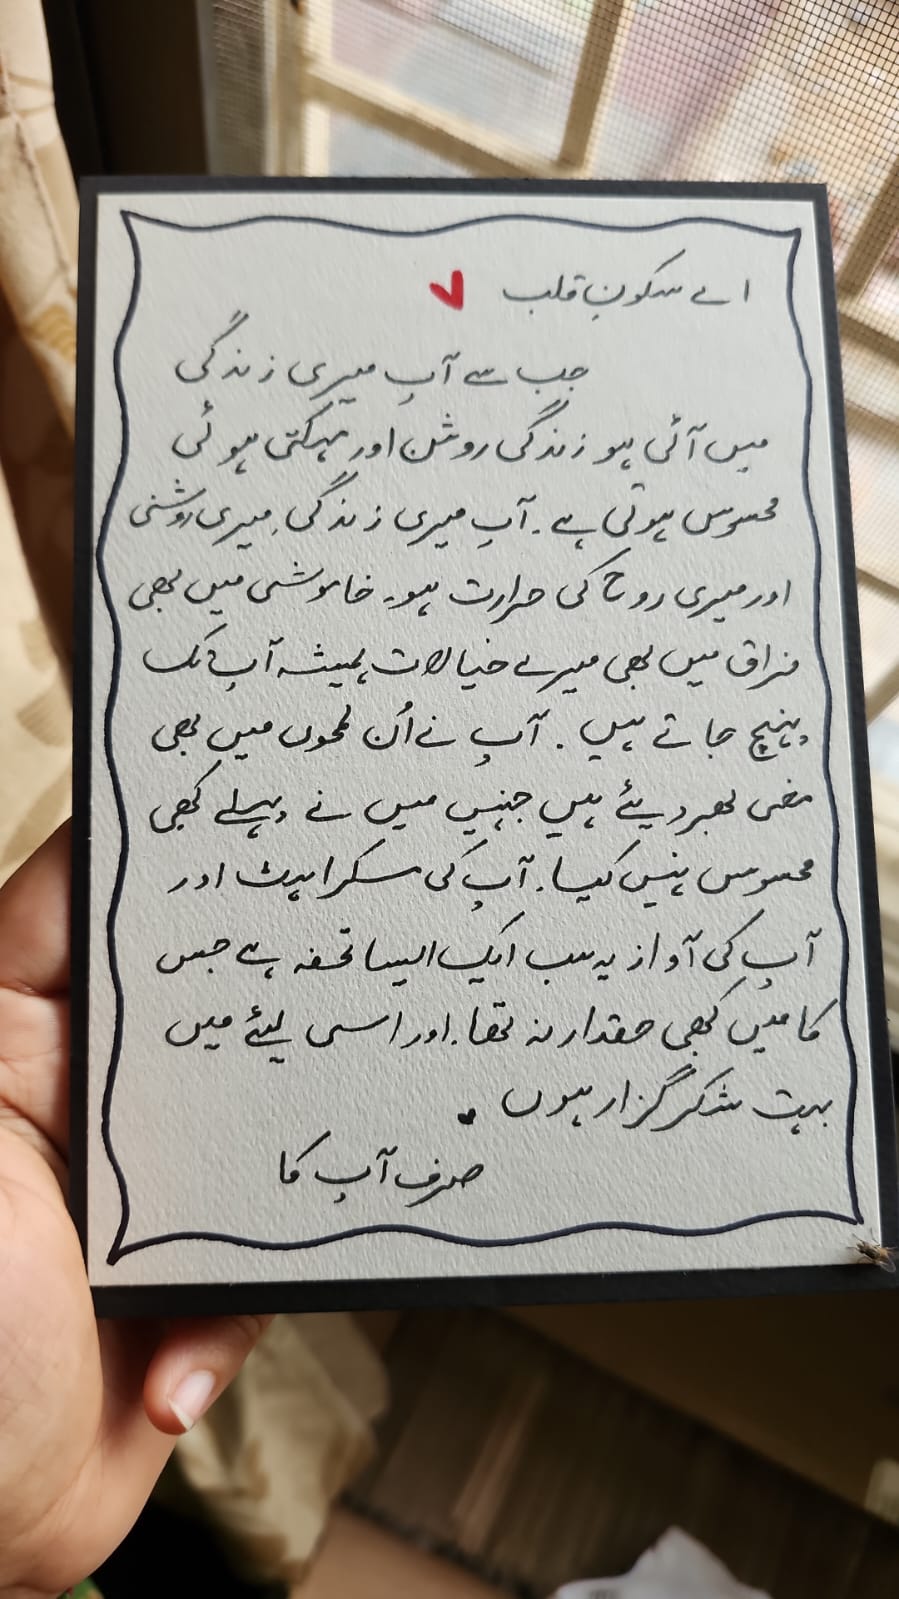 اے سکونِ قلب
جب سے آپ میری زندگی
میں آئی ہو زندگی روشن اور مہکتی ہوئی
محسوس ہوتی ہے۔ آپ میری زندگی، میری روشنی
اور میری روح کی حرارت ہو۔ خاموشی میں بھی
فراق میں بھی میرے خیالات ہمیشہ آپ تک
پہنچ جاتے ہیں۔ آپ نے اُن لمحوں میں بھی
بھر دیئے ہیں جنہیں میں نے پہلے کبھی
محسوس نہیں کیا۔ آپ کی مسکراہٹ اور
آپ کی آواز یہ سب ایک ایسا تحفہ ہے جس
کا میں کبھی حقدار نہ تھا۔ اور اسی لیئے میں
بہت شکر گزار ہوں
صرف آپ کا